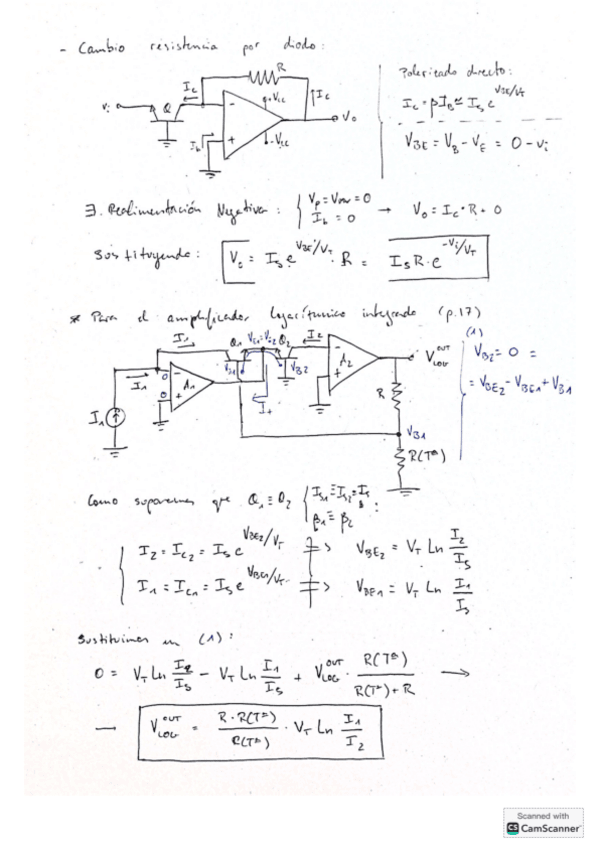 - Cambio resistencia por diodo:
R
Ic
Vi
Q
+Vcc
Ic
Vo
-
+
Ib
-Vcc
Polarizado directo:
Ic = βIB ≃ Is e^VBE/VT
VBE = VB - VE = 0 - vi
∃. Realimentación Negativa: { Vp = Vinv = 0
Ib = 0 → Vo = Ic·R + 0
Sustituyendo: Vo = Is e^VBE/VT · R = Is R · e^-Vi/VT
* Para el amplificador logarítmico integrado (p.17)
I1
Q1
VE1=VE2
Q2
I2
VB1
VB2
A1
A2
I1
I1
R
VLOG^OUT
VB1
R(Tª)
(1)
VB2 = 0 =
= VBE2 - VBE1 + VB1
Como suponemos que Q1 ≡ Q2 { Is1 ≡ Is2 = Is
β1 ≡ β2 :
I2 = Ic2 = Is e^VBE2/VT ⇒ VBE2 = VT Ln I2/Is
I1 = Ic1 = Is e^VBE1/VT ⇒ VBE1 = VT Ln I1/Is
Sustituimos en (1):
0 = VT Ln I2/Is - VT Ln I1/Is + VLOG^OUT · R(Tª)/R(Tª)+R →
→ VLOG^OUT = R·R(Tª)/R(Tª) · VT Ln I1/I2
Scanned with
CS CamScanner